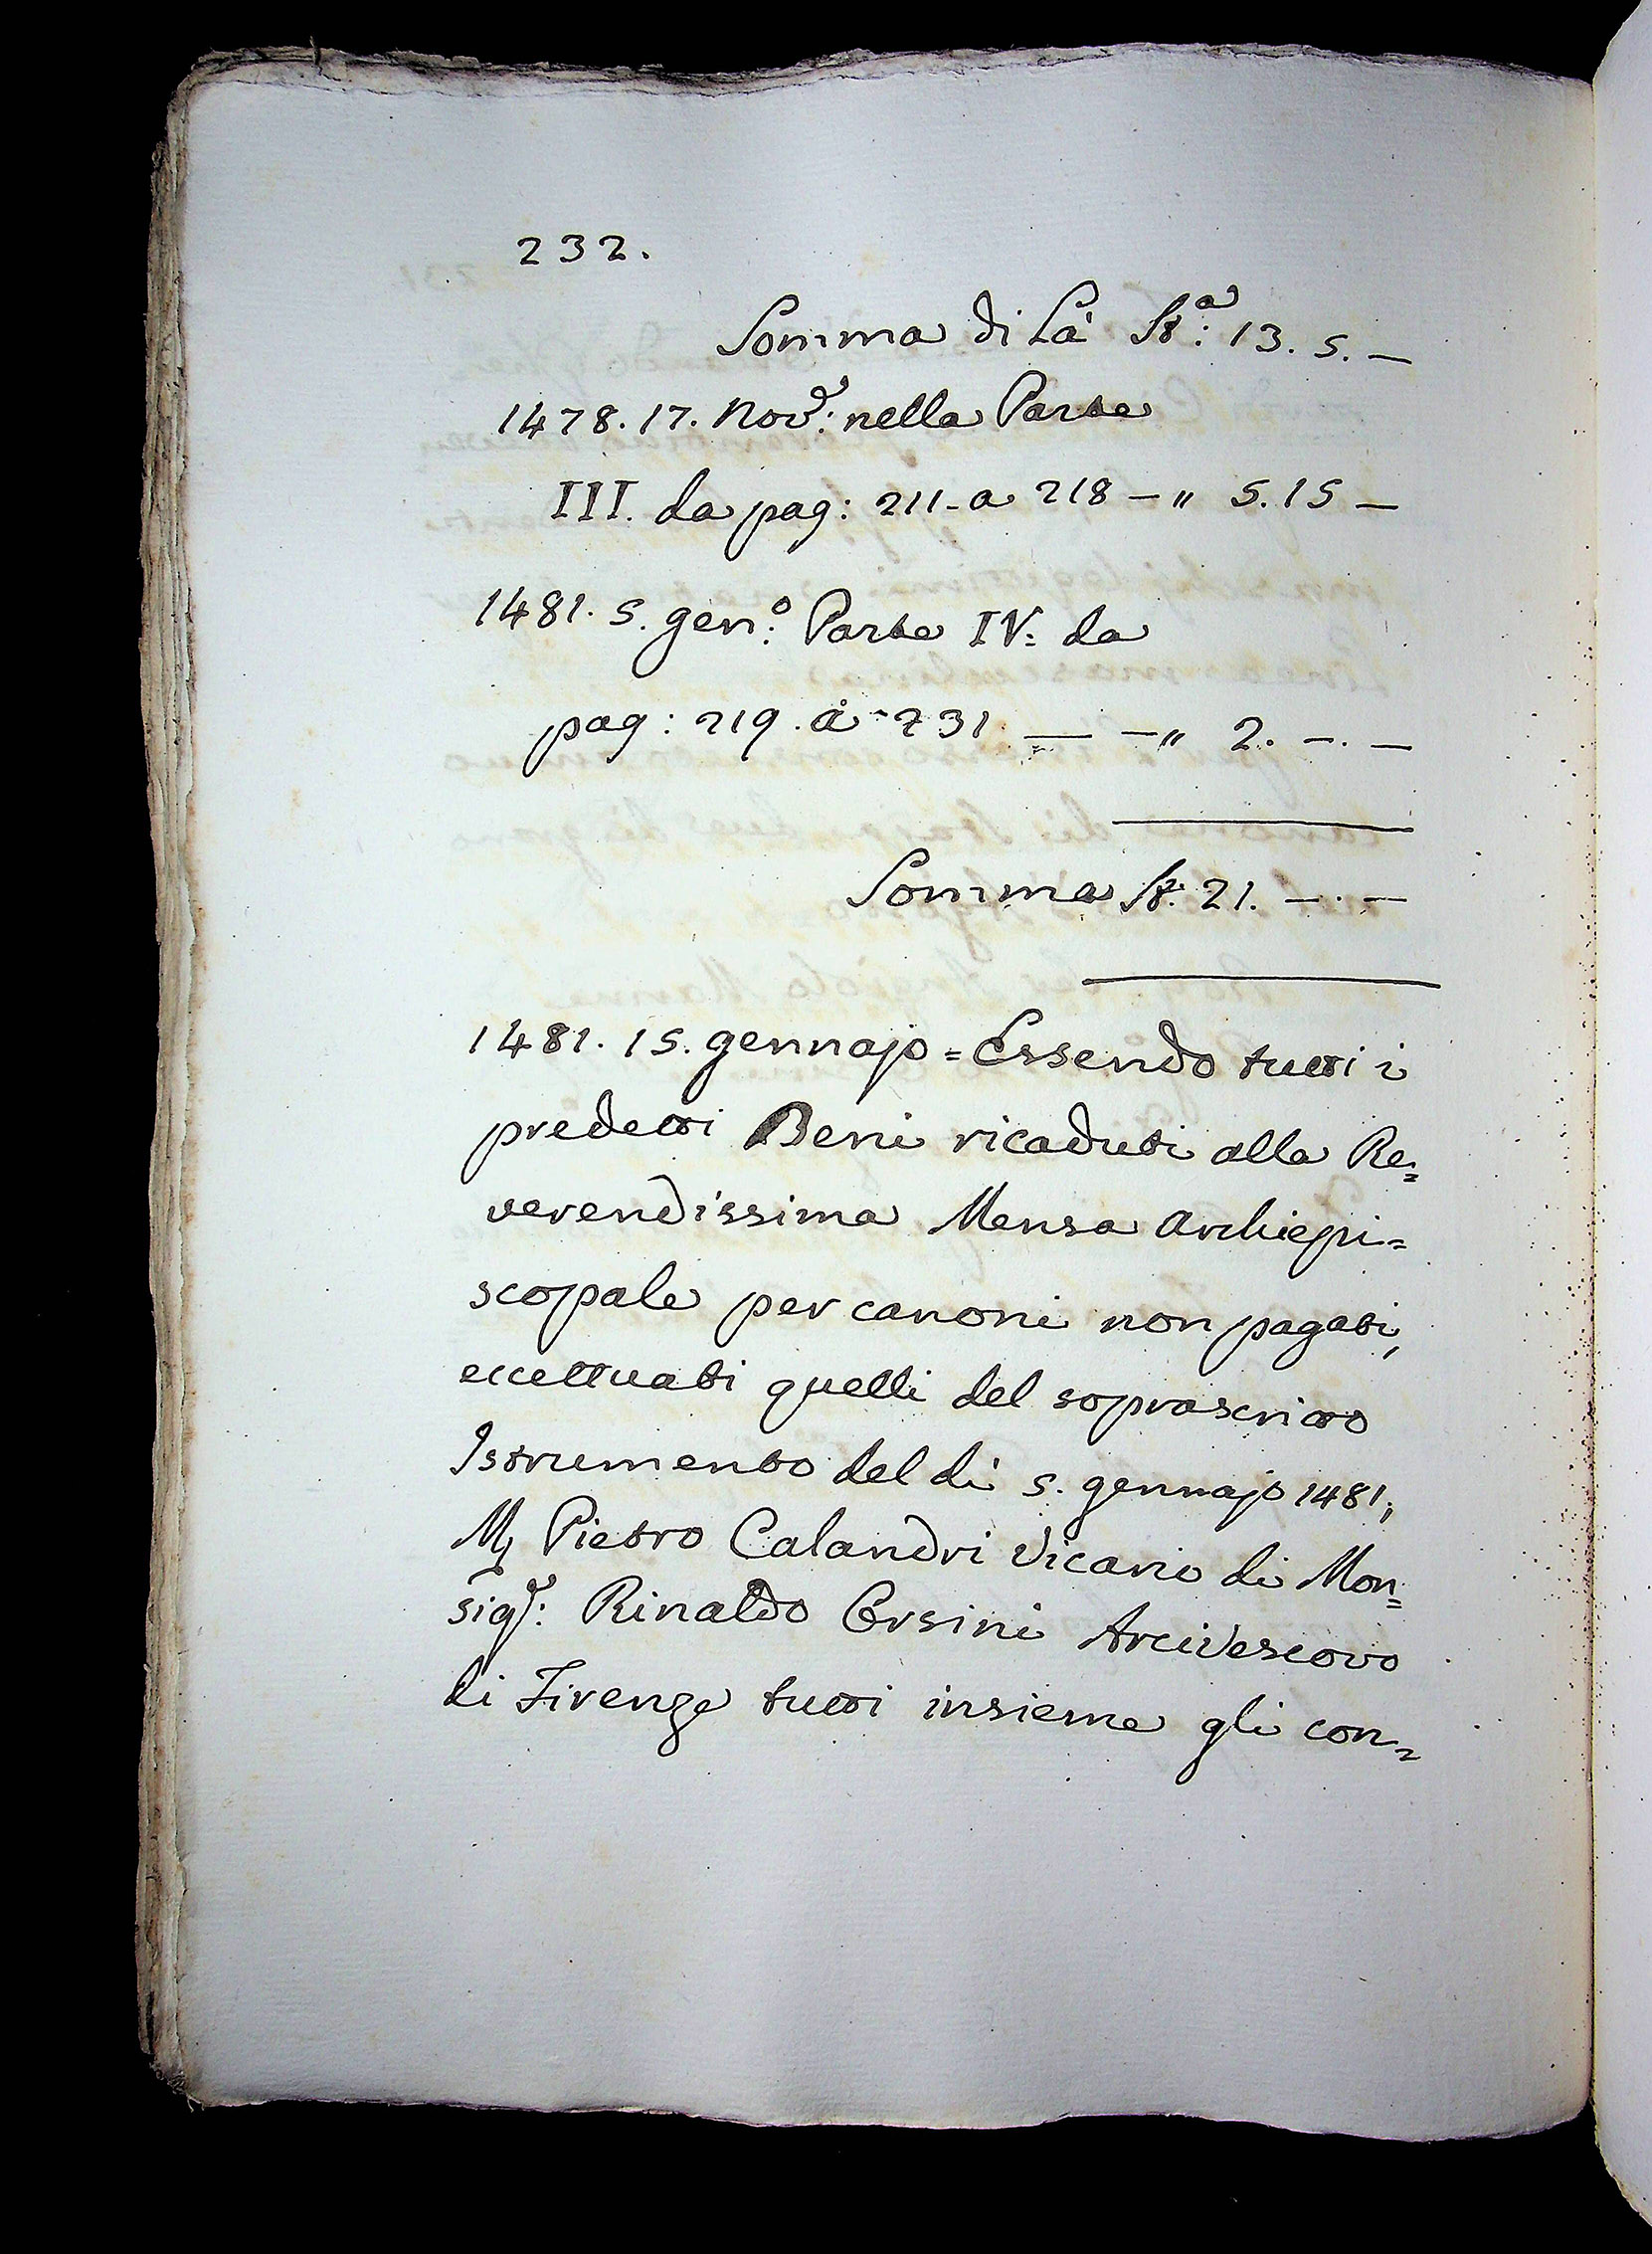 232.
Somma di Là St.ª: 13. 5. —
1478. 17. Nov.e: nella Parte
III. da pag: 211. a 218 — „ 5. 15 —
1481. 5. gen.º: Parte IV: da
pag: 219. a 231 — — „ 2. —. —
Somma St. 21. —. —
1481. 15. gennajo = Essendo tutti i
predetti Beni ricaduti alla Re=
verendissima Mensa Archiepi=
scopale per canoni non pagati,
eccettuati quelli del soprascritto
Istrumento del di 5. gennajo 1481,
M, Pietro Calandri Vicario di Mon=
sig.r: Rinaldo Orsini Arcivescovo
di Firenze tutti insieme gli con=